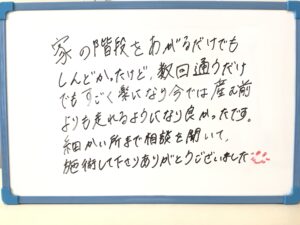 家の階段をあがるだけでも
しんどかったけど、数回通うだけ
でもすごく楽になり今では産む前
よりも走れるようになり良かったです。
細かい所まで相談を聞いて、
施術して下さりありがとうございました